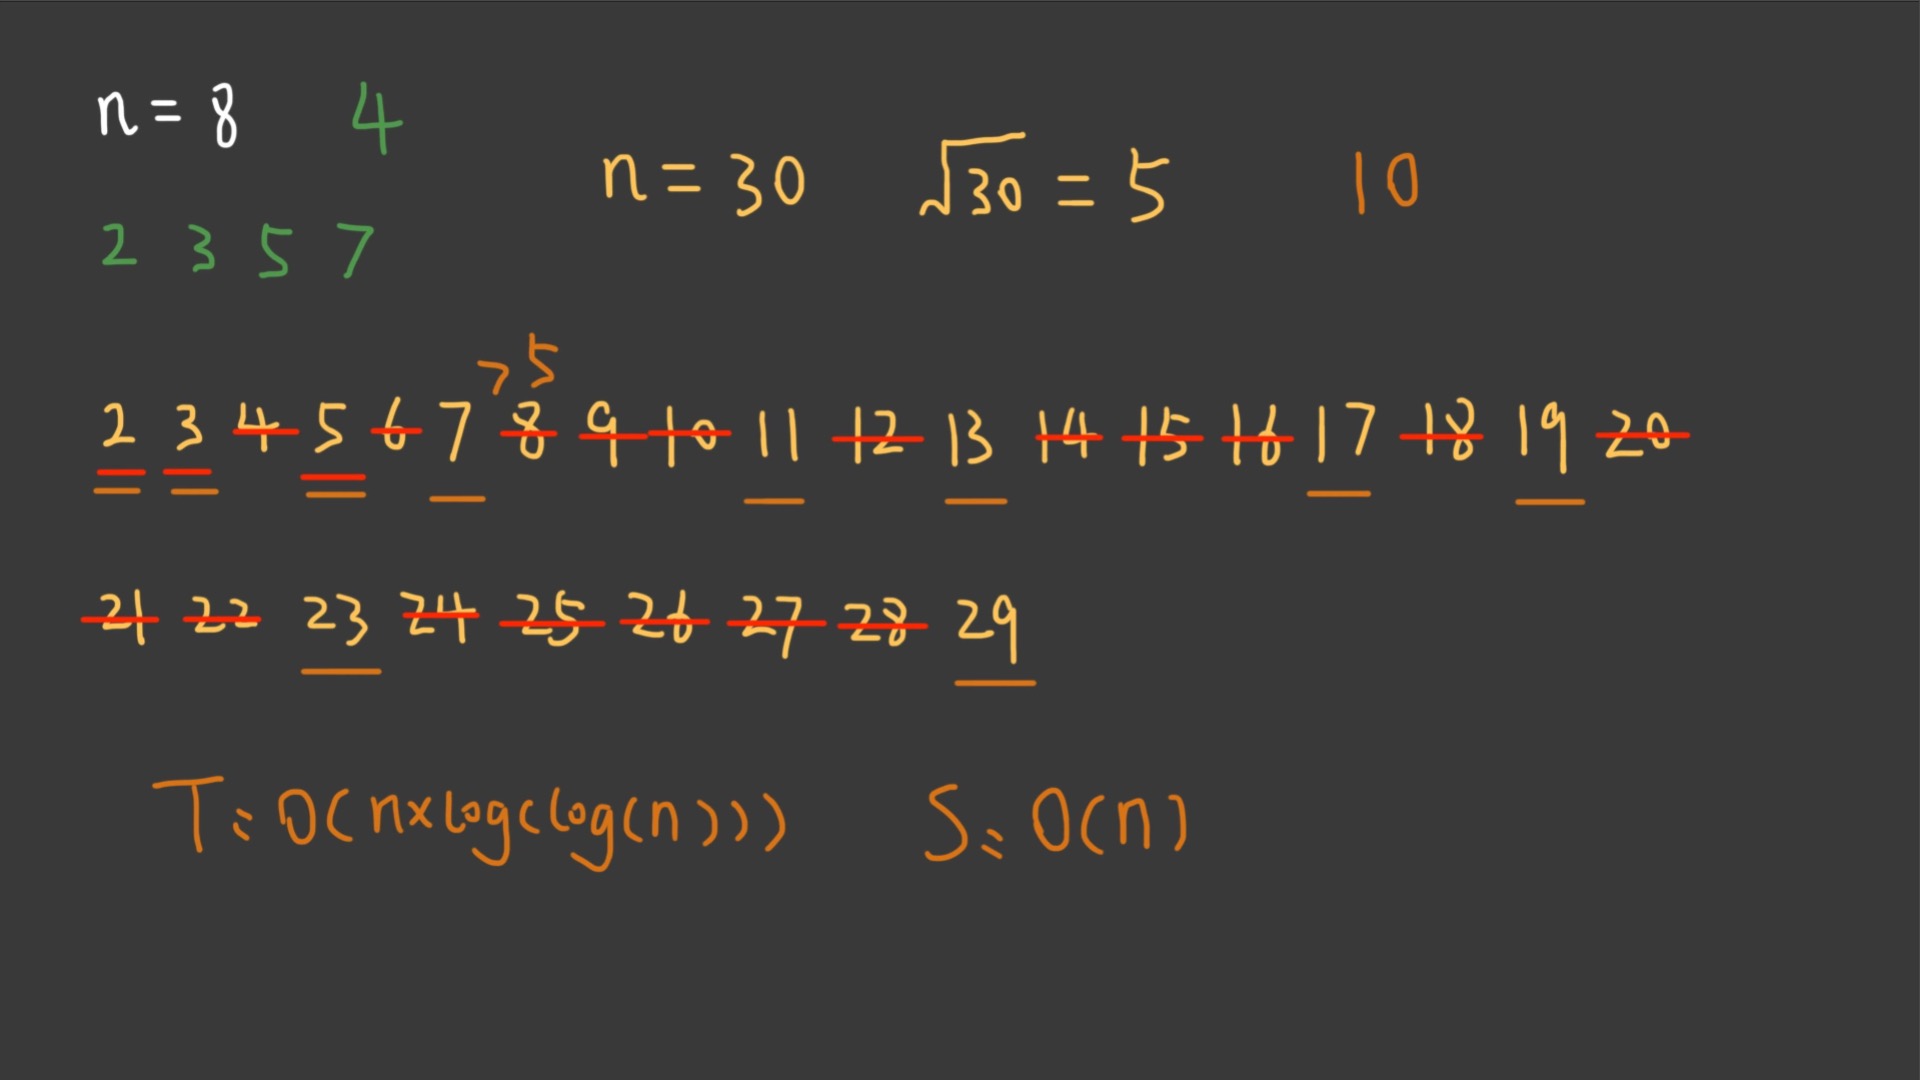 n = 8 4
n = 30 √30 = 5 10
2 3 5 7
>5
2 3 4 5 6 7 8 9 10 11 12 13 14 15 16 17 18 19 20
21 22 23 24 25 26 27 28 29
T: O(n×log(log(n))) S: O(n)